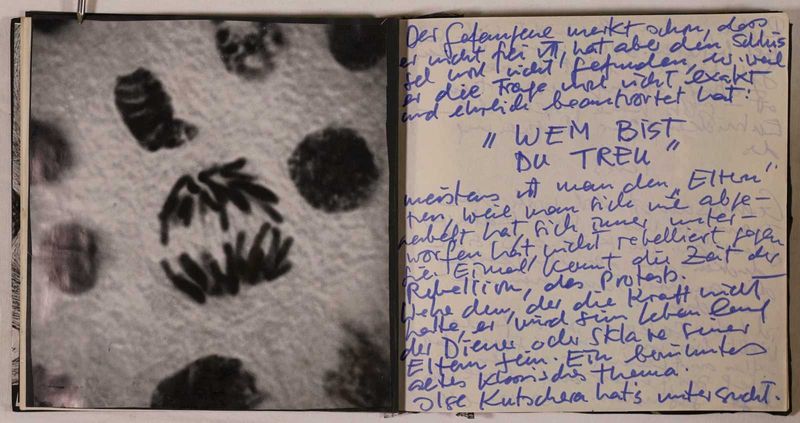 Der Gefangene merkt schon, dass
er nicht frei ist, hat aber den Schlüs
sel noch nicht gefunden, weil
er die Frage noch nicht exakt
und ehrlich beantwortet hat:
"WEM BIST
DU TREU"
meistens ist man den "Eltern"
treu, weil man sich nie abge-
nabelt hat sich immer unter-
worfen hat, nicht rebelliert gegen
sie. Einmal kommt die Zeit der
Rebellion, des Protests.
Wehe dem, der die Kraft nicht
hatte, er wird sein Leben lang
der Diener oder Sklave seiner
Eltern sein. Ein berühmtes
altes Thema.
Olga Kutschera hat's untersucht.